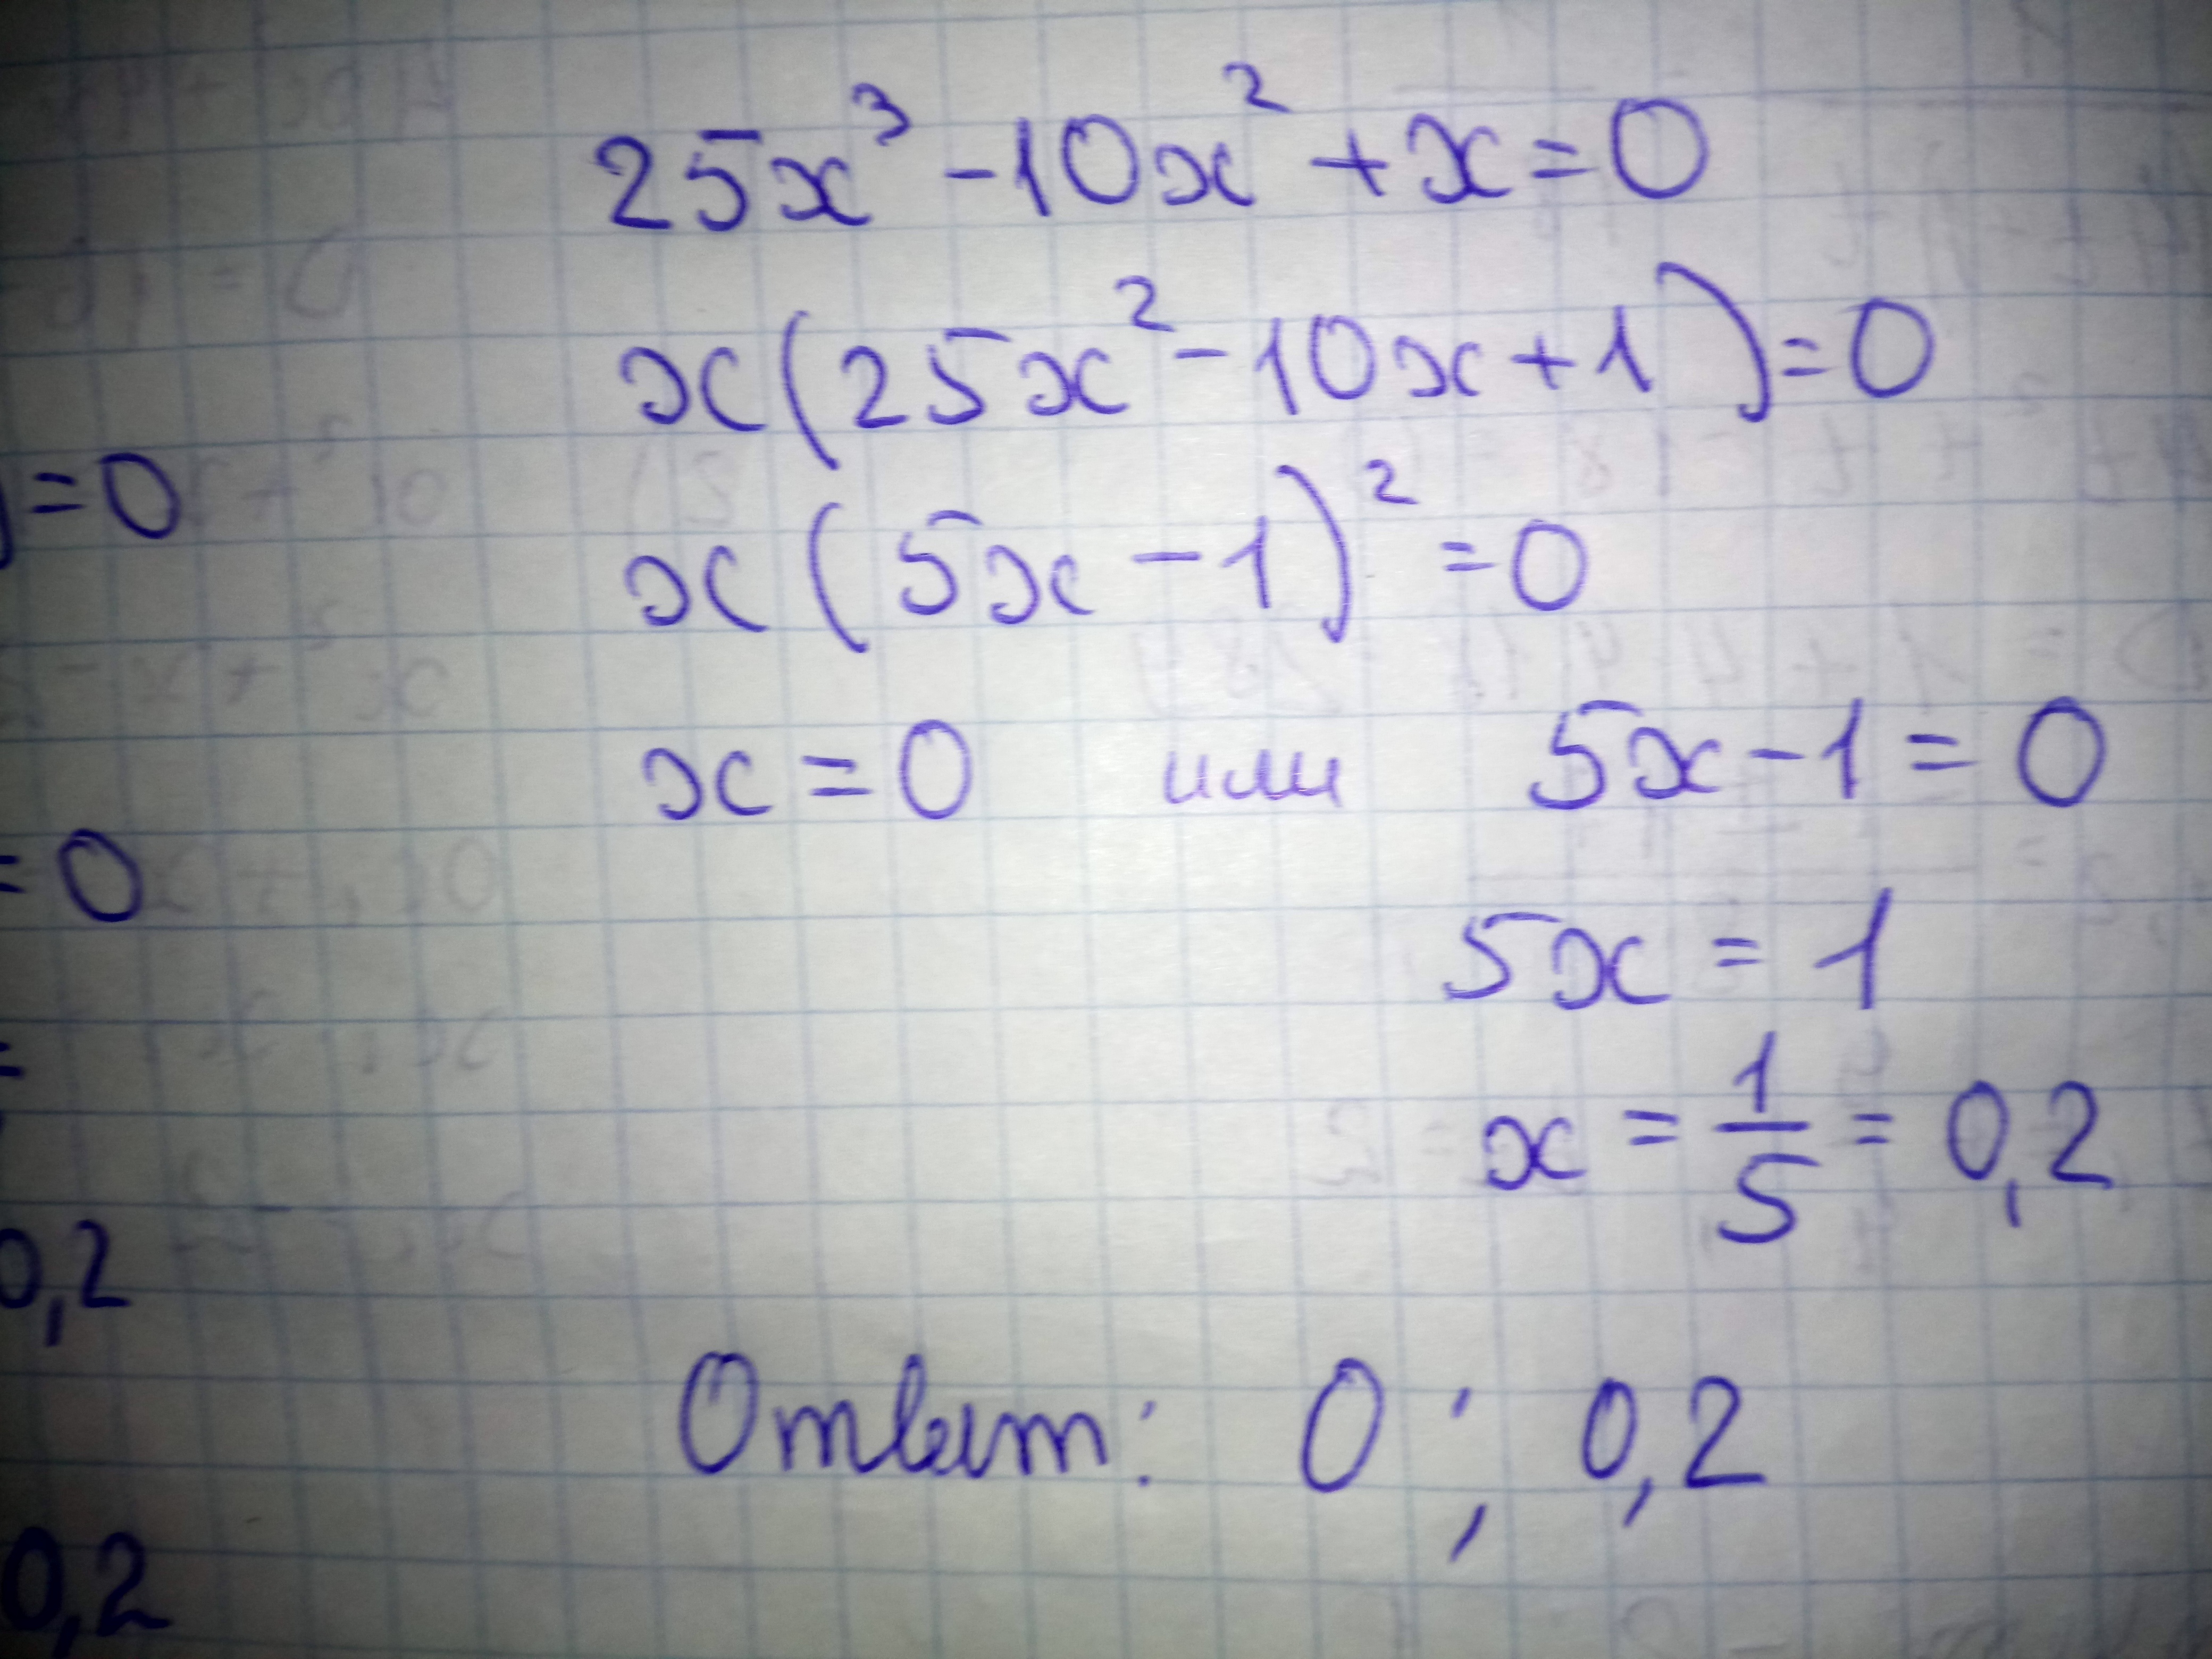 25x³ - 10x² + x = 0
x(25x² - 10x + 1) = 0
) = 0
x(5x - 1)² = 0
x = 0 или 5x - 1 = 0
= 0
5x = 1
=
x = 1/5 = 0,2
0,2
Ответ: 0 ; 0,2
0,2